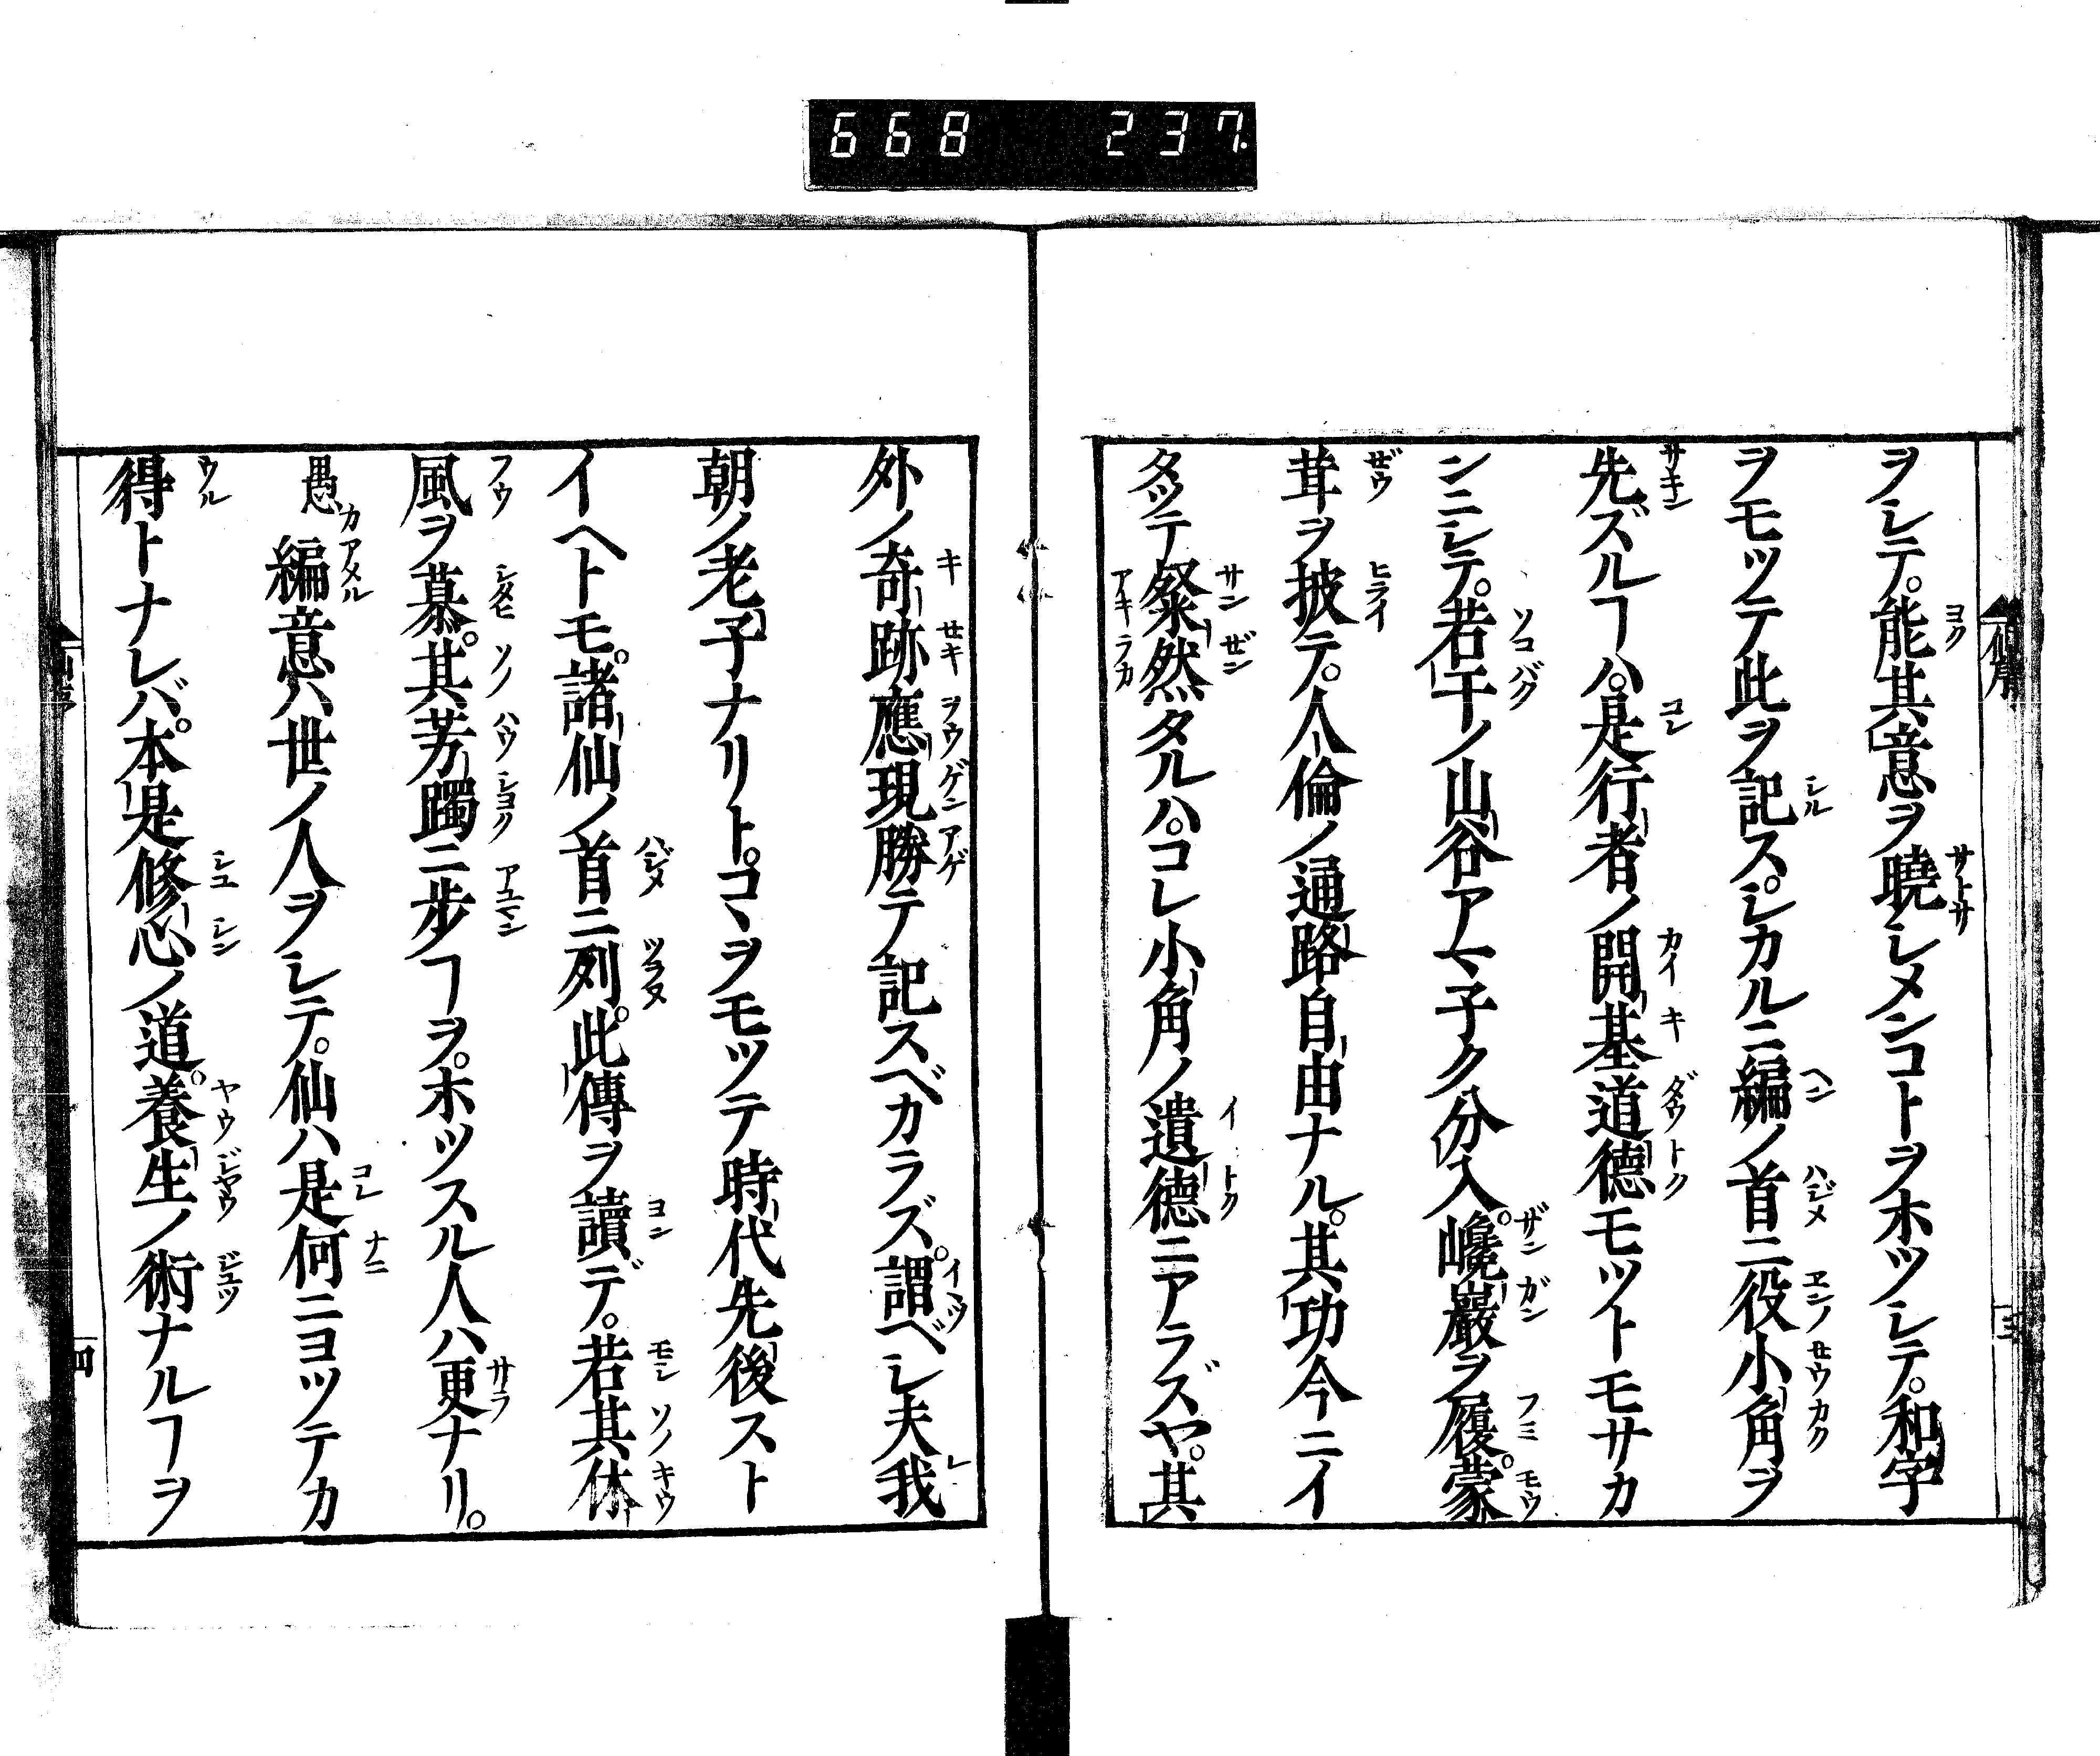 668 237.
ヲシテ。能其意ヲ曉シメンコトヲホツシテ。和字
ヲモツテ此ヲ記ス。シカルニ編ノ首ニ役小角ヲ
先ズルヿハ。是行者ノ開基道德モツトモサカ
ンニシテ。若干ノ山谷アマ子ク分入。巉巖ヲ履。蒙
茸ヲ披テ。人倫ノ通路自由ナル。其功今ニイ
タツテ粲然タルハ。コレ小角ノ遺德ニアラズヤ。其
外ノ奇跡應現勝テ記スベカラズ。謂ベシ夫我
朝ノ老子ナリト。コヽヲモツテ時代先後スト
イヘトモ。諸仙ノ首ニ列。此傳ヲ讀デ。若其休
風ヲ慕。其芳躅ニ步ヿヲ。ホツスル人ハ更ナリ。
愚編意ハ世ノ人ヲシテ。仙ハ是何ニヨツテカ
得トナレバ。本是修心ノ道。養生ノ術ナルヿヲ